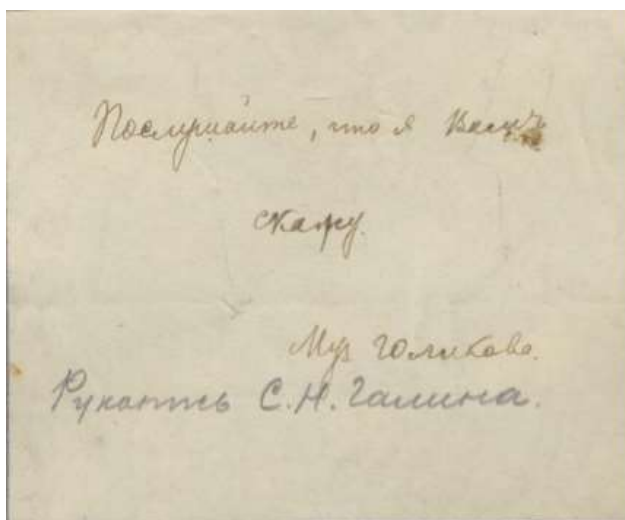 Послушайте, что я Вамъ
скажу.
Муз Голикова.
Рукопись С.Н. Галина.